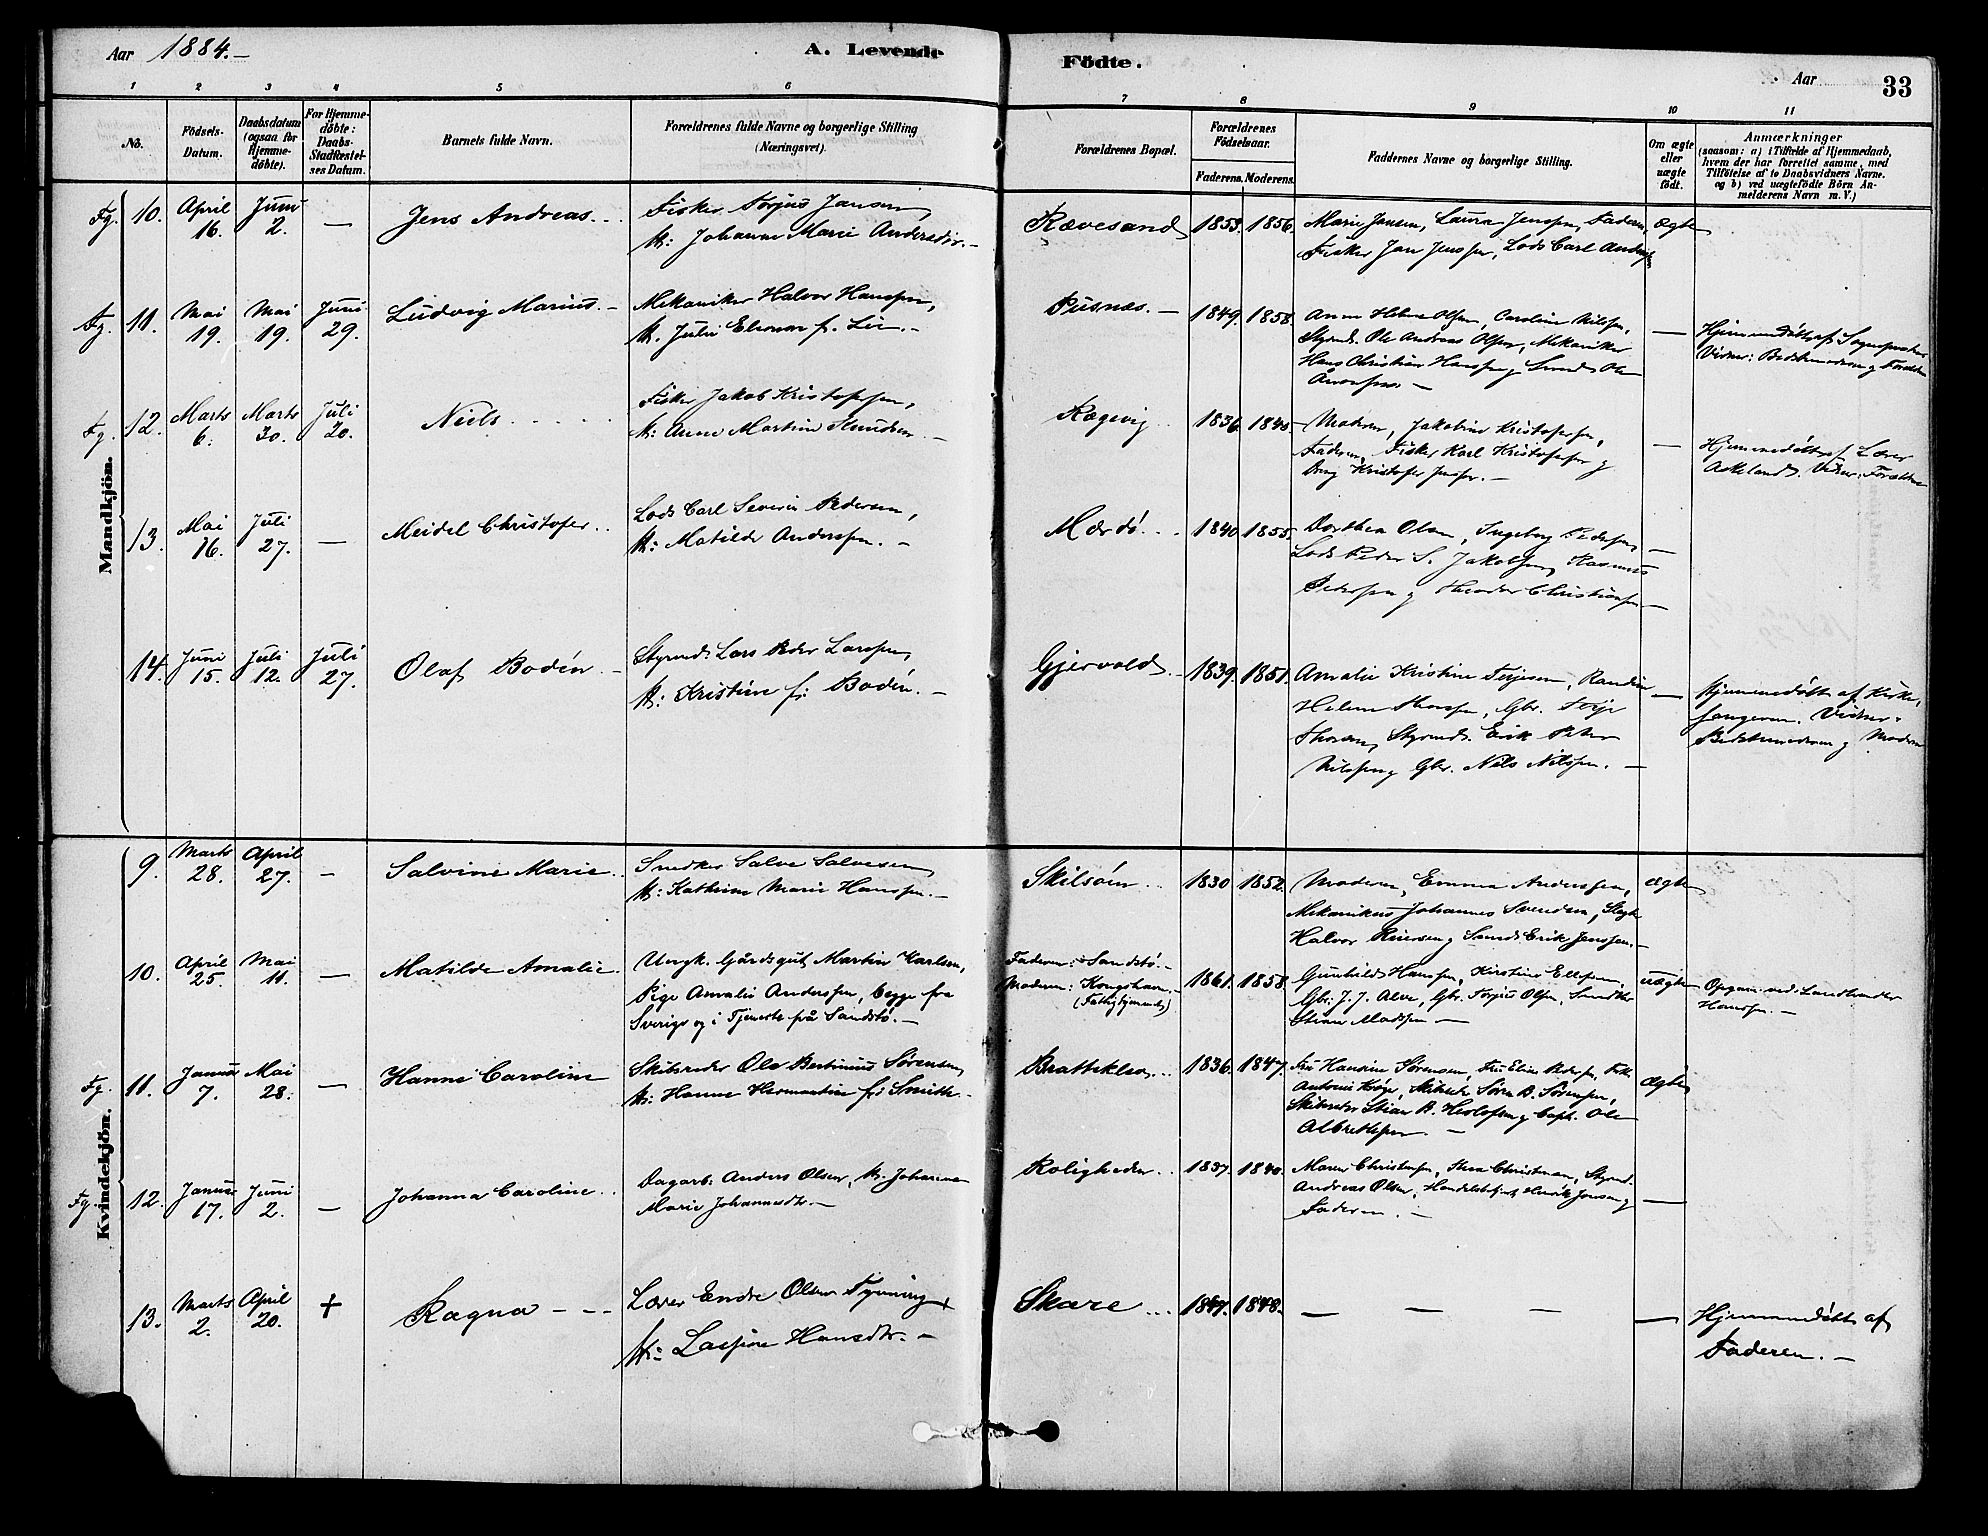 Aar 1884.—
A. Levende
Födte.
Aar
33
1 2 3 4 5 6 7 8 9 10 11
No.
Födsels-
Datum.
Daabsdatum
(ogsaa for
Hjemme-
döbte).
For Hjemme-
döbte:
Daabs-
Stadfæstel-
ses Datum.
Barnets fulde Navn.
Forældrenes fulde Navne og borgerlige Stilling
(Næringsvei).
Forældrenes Bopæl.
Forældrenes
Födselsaar.
Faderens. Moderens.
Faddernes Navne og borgerlige Stilling.
Om ægte
eller
uægte
födt.
Anmærkninger
(saasom: a) i Tilfælde af Hjemmedaab,
hvem der har forrettet samme, med
Tilföielse af to Daabsvidners Navne.
og b) ved uægtefödte Börn An-
melderens Navn m. V.)
Mandkjön.
Fg. 10. April 16. Juni 2. — Jens Andreas.
Fisker Torjus Jansen,
H: Johanne Marie Andersdtr. —
Rævesand 1853. 1856.
Marie Jansen, Laura Jenssen, Faderen,
Fisker Jan Jenssen, Lods Carl
ægte
Fg. 11. Mai 19. Mai 19. Juni 29. Ludvig Marius. —
Mekaniker Halvor Hanssen,
H. Julie Eleonore f. Lie. —
Pusnæs. — 1849. 1858.
Anne Helene Olsen, Caroline Nilssen,
Styrmd. Ole Andreas Olsen, Mekaniker
Hans Christian Hanssen
—
Hjemmedöbt af Sognepresten
Vidner: Bedstemoderen
Fg. 12. Marts 6. Marts 30. Juli 20. Niels
Fisker Jakob Kristoffersen,
H: Anne Martine Knudsen. —
Rægevig 1836. 1840.
Moderen, Jakobine Kristoffersen,
Faderen, Fisker Karl Kristoffersen
Kristofer Jenssen. —
—
Hjemmedöbt af Lærer
Askeland. Vidner: Forældrene
13. Mai 16. Juli 27. — Meidel Christofer
Lods Carl Severin Pedersen,
H: Matilde Anderssen. —
Mærdö 1840 1855.
Dorthea Olsen, Ingeborg Pederssen,
Lods Peder S. Jakobsen, Rasmus
Pederssen Theodor Christianssen
—
14. Juni 15. Juli 12. Juli 27. Olaf Bodén. —
Styrmd. Lars Peder Larssen,
H: Kristine f: Bodén. —
Gjervold 1839. 1851.
Amalie Kristine Terjesen,
Helene, Gbr. Terje
Styrmd. Erik Peter
Nilssen, Gbr. Nils Nilssen. —
—
Hjemmedöbt af Kirke-
sangeren. Vidner:
Bedstemoderen Moderen
Kvindekjön.
9. Marts 28. April 27. — Salvine Marie.
Snedker Salve Salvesen,
H: Kathrine Marie Hanssen. —
Skilsöen 1830 1852.
Moderen, Emma Anderssen,
Mekanikus Johannes Svendsen,
Halvor Erik Jenssen. —
ægte
10. April 25. Mai 11. — Matilde Amalie.
Ungk. Gårdsgut Martin Karlsen,
Pige Amalie Anderssen, begge fra
Sverige og i Tjeneste på Sandstö. —
Faderen: Sandstö. —
Moderen: Kongshavn. —
1861. 1858.
Gunhild Hanssen, Kirstine
Gbr. J. J. Alve, Gbr. Torjus Olsen, Smed
Stian Madssen —
uægte
Opgav. ved Landhandler
Hanssen. —
Fg. 11. Januar 7. Mai 28. — Hanne Caroline
Skibsreder Ole Bertinius Sörensen,
H: Hanne Hermantine f. Smith.
Bratteklev 1836. 1847.
Fru Hansine Sörensen, Fru Eline Pederssen, Frk.
Antonie, Skibsreder Sören B. Sörenssen,
Skibsreder Stian B. Herlofsen, Capt. Ole
Albrethsen. —
ægte
Fg. 12. Januar 17. Juni 2. — Johanna Caroline
Dagarb. Anders Olsen, H. Johanne
Marie Johannesdtr. —
Roligheden 1837. 1840.
Maren Christensen, Styrmd.
Andreas Olsen, Henrik Jenssen
Faderen. —
—
13. Marts 2. April 20. + Ragna — — —
Lærer Endre Olsen Tynning
H: Lasine Hansdtr. —
Skare 1847. 1848. — — — —
Hjemmedöbt af
Faderen. —